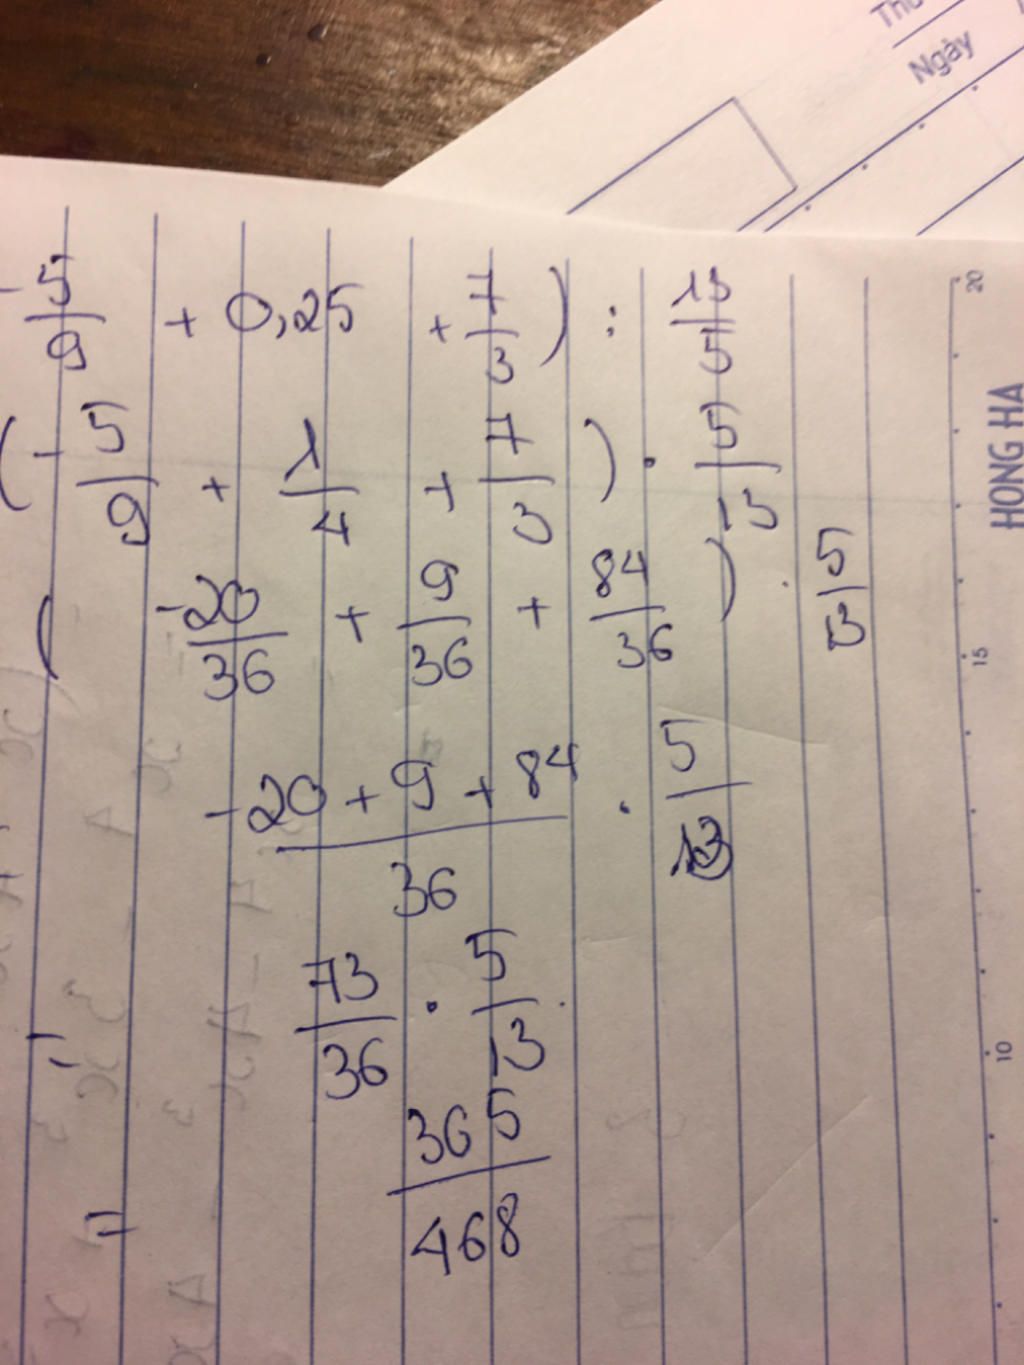 Ngày
-5/9 + 0,25 + 7/3 ) : 13/5
( -5/9 + 1/4 + 7/3 ) . 5/13
( -20/36 + 9/36 + 84/36 ) . 5/13
-20 + 9 + 84/36 . 5/13
= 73/36 . 5/13
= 365/468
HONG HA
20
15
10